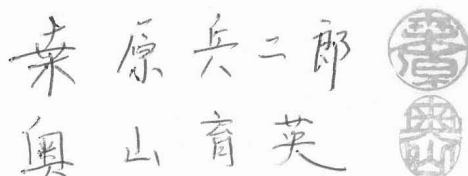 桒原兵二郎 桒原
奥山育英 奥山